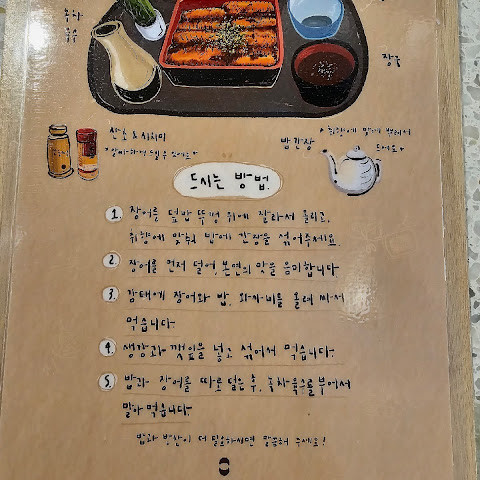 녹차
육수
장국
산초 & 시치미
밥간장
*취향에 맞게 뿌려서
드세요*
드시는 방법.
1. 장어를 덮밥 뚜껑 위에 잘라서 올리고,
취향에 맞춰 밥에 간장을 섞어주세요.
2. 장어를 먼저 덜어, 본연의 맛을 음미합니다
3. 감태에 장어와 밥, 와사비를 올려 싸서
먹습니다.
4. 생강과 깻잎을 넣고 섞어서 먹습니다.
5. 밥과 장어를 따로 덜은 후, 녹차육수를 부어서
말아 먹습니다.
밥과 반찬이 더 필요하시면 말씀해 주세요!